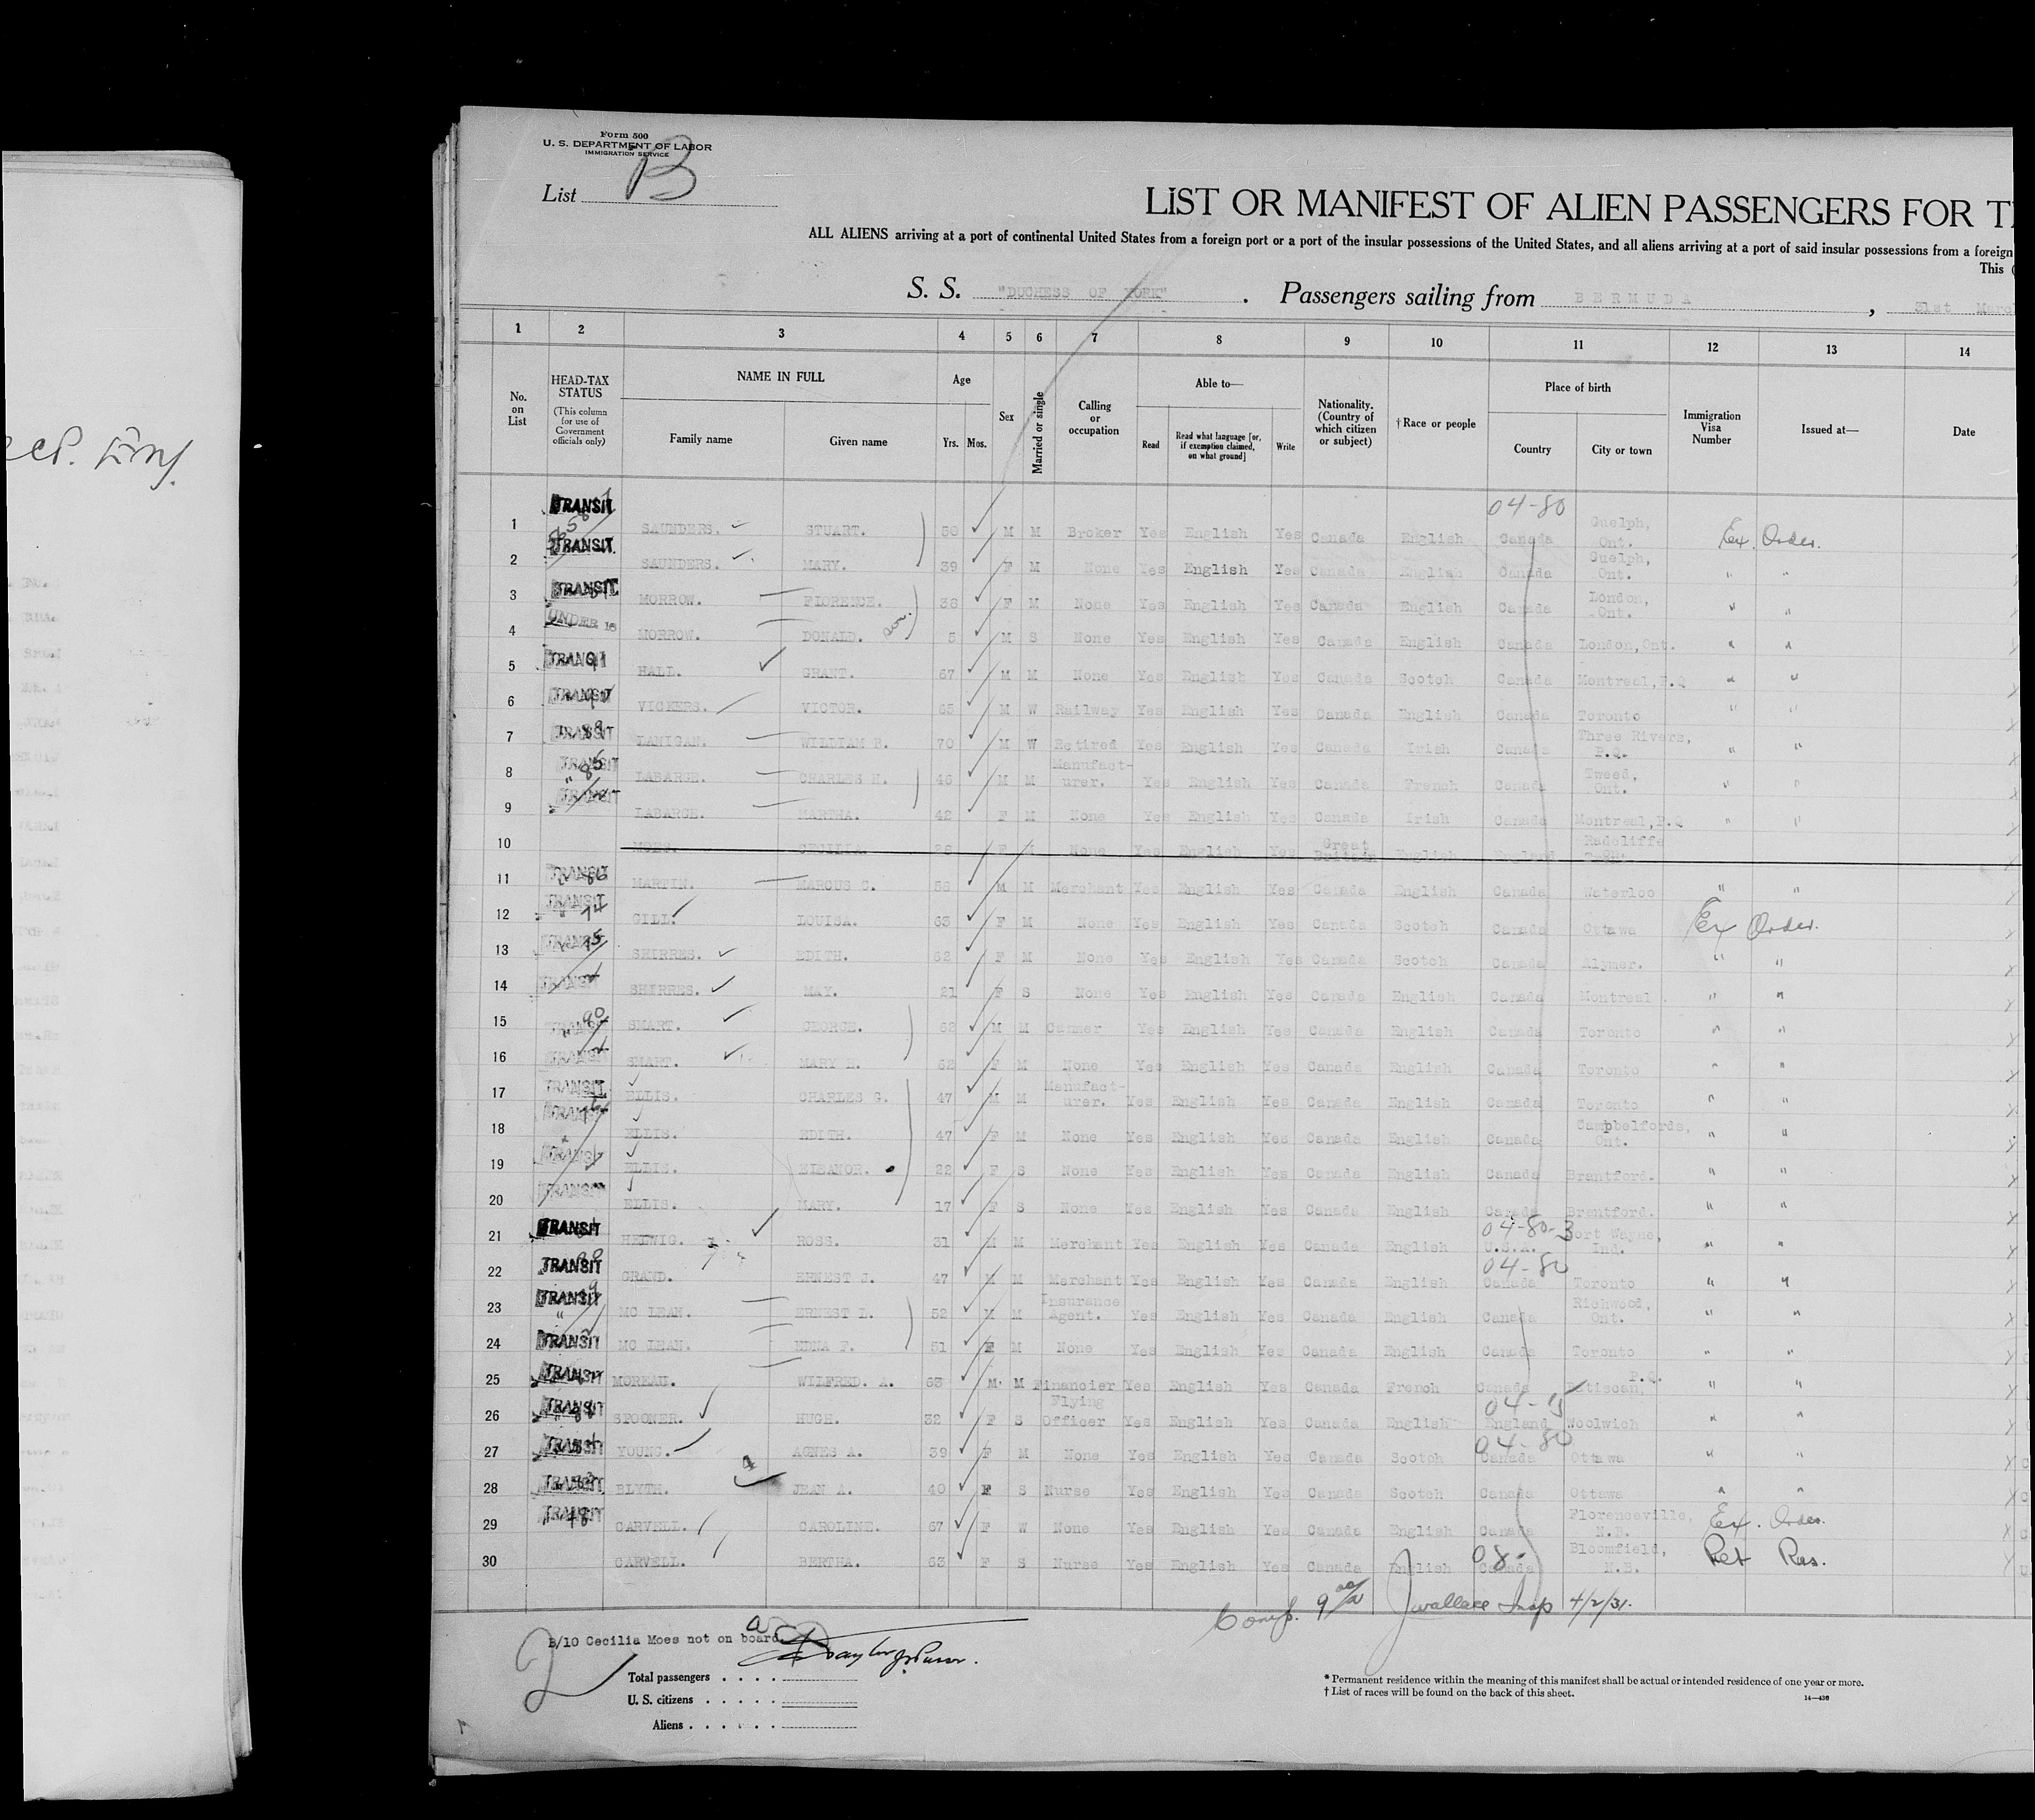 Form 500
U. S. DEPARTMENT OF LABOR
IMMIGRATION SERVICE
List B
LIST OR MANIFEST OF ALIEN PASSENGERS FOR T
ALL ALIENS arriving at a port of continental United States from a foreign port or a port of the insular possessions of the United States, and all aliens arriving at a port of said insular possessions from a foreign
This
S. S. "DUCHESS OF YORK" . Passengers sailing from BERMUDA , 31st Marc
1 2 3 4 5 6 7 8 9 10 11 12 13 14
No. on List
HEAD-TAX STATUS
(This column for use of Government officials only)
NAME IN FULL
Family name Given name
Age
Yrs. Mos.
Sex
Married or single
Calling or occupation
Able to—
Read
Read what language [or, if exemption claimed, on what ground]
Write
Nationality. (Country of which citizen or subject)
† Race or people
Place of birth
Country City or town
Immigration Visa Number
Issued at—
Date
04-80
1 TRANSIT SAUNDERS. STUART. 50 M M Broker Yes English Yes Canada English Canada Guelph, Ont. Ex. Order.
2 TRANSIT SAUNDERS. MARY. 39 F M None Yes English Yes Canada English Canada Guelph, Ont. " "
3 TRANSIT MORROW. FLORENCE. 38 F M None Yes English Yes Canada English Canada London, Ont. " "
4 UNDER 16 MORROW. DONALD. son. 5 M S None Yes English Yes Canada English Canada London, Ont. " "
5 TRANSIT HALL. GRANT. 67 M M None Yes English Yes Canada Scotch Canada Montreal, P.Q " "
6 TRANSIT VICKERS. VICTOR. 65 M W Railway Yes English Yes Canada English Canada Toronto " "
7 TRANSIT LANIGAN. WILLIAM B. 70 M W Retired Yes English Yes Canada Irish Canada Three Rivers, P.Q. " "
8 TRANSIT LABARGE. CHARLES H. 46 M M Manufact-urer. Yes English Yes Canada French Canada Tweed, Ont. " "
9 TRANSIT LABARGE. MARTHA. 42 F M None Yes English Yes Canada Irish Canada Montreal, P.Q " "
10 MOES. CECILIA 28 F None Yes English Yes Great Britain English England Radcliffe
11 TRANSIT MARTIN. MARCUS C. 56 M M Merchant Yes English Yes Canada English Canada Waterloo " "
12 TRANSIT GILL. LOUISA. 63 F M None Yes English Yes Canada Scotch Canada Ottawa Ex Order.
13 TRANSIT SHIRRES. EDITH. 52 F M None Yes English Yes Canada Scotch Canada Alymer. " "
14 TRANSIT SHIRRES. MAY. 21 F S None Yes English Yes Canada English Canada Montreal " "
15 TRANSIT SMART. GEORGE. 62 M M Canner Yes English Yes Canada English Canada Toronto " "
16 TRANSIT SMART. MARY L. 62 F M None Yes English Yes Canada English Canada Toronto " "
17 TRANSIT ELLIS. CHARLES G. 47 M M Manufact-urer. Yes English Yes Canada English Canada Toronto " "
18 TRANSIT ELLIS. EDITH. 47 F M None Yes English Yes Canada English Canada Campbelfords, Ont. " "
19 TRANSIT ELLIS. ELEANOR. 22 F S None Yes English Yes Canada English Canada Brantford. " "
20 TRANSIT ELLIS. MARY. 17 F S None Yes English Yes Canada English Canada Brantford. " "
04-80-3
21 TRANSIT HEDWIG. ROSS. 31 M M Merchant Yes English Yes Canada English U.S.A. Fort Wayne, Ind. " "
04-80
22 TRANSIT GRAND. ERNEST J. 47 M M Merchant Yes English Yes Canada English Canada Toronto " "
23 TRANSIT MC LEAN. ERNEST L. 52 M M Insurance Agent. Yes English Yes Canada English Canada Richwood, Ont. " "
24 TRANSIT MC LEAN. EDNA F. 51 F M None Yes English Yes Canada English Canada Toronto " "
25 TRANSIT MOREAU. WILFRED. A. 63 M. M Financier Yes English Yes Canada French Canada Batiscan, P.Q. " "
04-15
26 TRANSIT SPOONER. HUGH. 32 F S Flying Officer Yes English Yes Canada English England Woolwich " "
04-80
27 TRANSIT YOUNG. AGNES A. 39 F M None Yes English Yes Canada Scotch Canada Ottawa " "
28 TRANSIT BLYTH. JEAN A. 40 F S Nurse Yes English Yes Canada Scotch Canada Ottawa " "
29 TRANSIT CARVELL. CAROLINE. 67 F W None Yes English Yes Canada English Canada Florenceville, N.B. Ex. Order.
30 CARVELL. BERTHA. 63 F S Nurse Yes English Yes Canada English 08- Canada Bloomfield, N.B. Ret Res.
Comp. 9 J Wallace Insp 4/2/31.
B/10 Cecilia Moes not on board.
Total passengers . . . .
U. S. citizens . . . . .
Aliens . . . . . .
* Permanent residence within the meaning of this manifest shall be actual or intended residence of one year or more.
† List of races will be found on the back of this sheet.
14—430